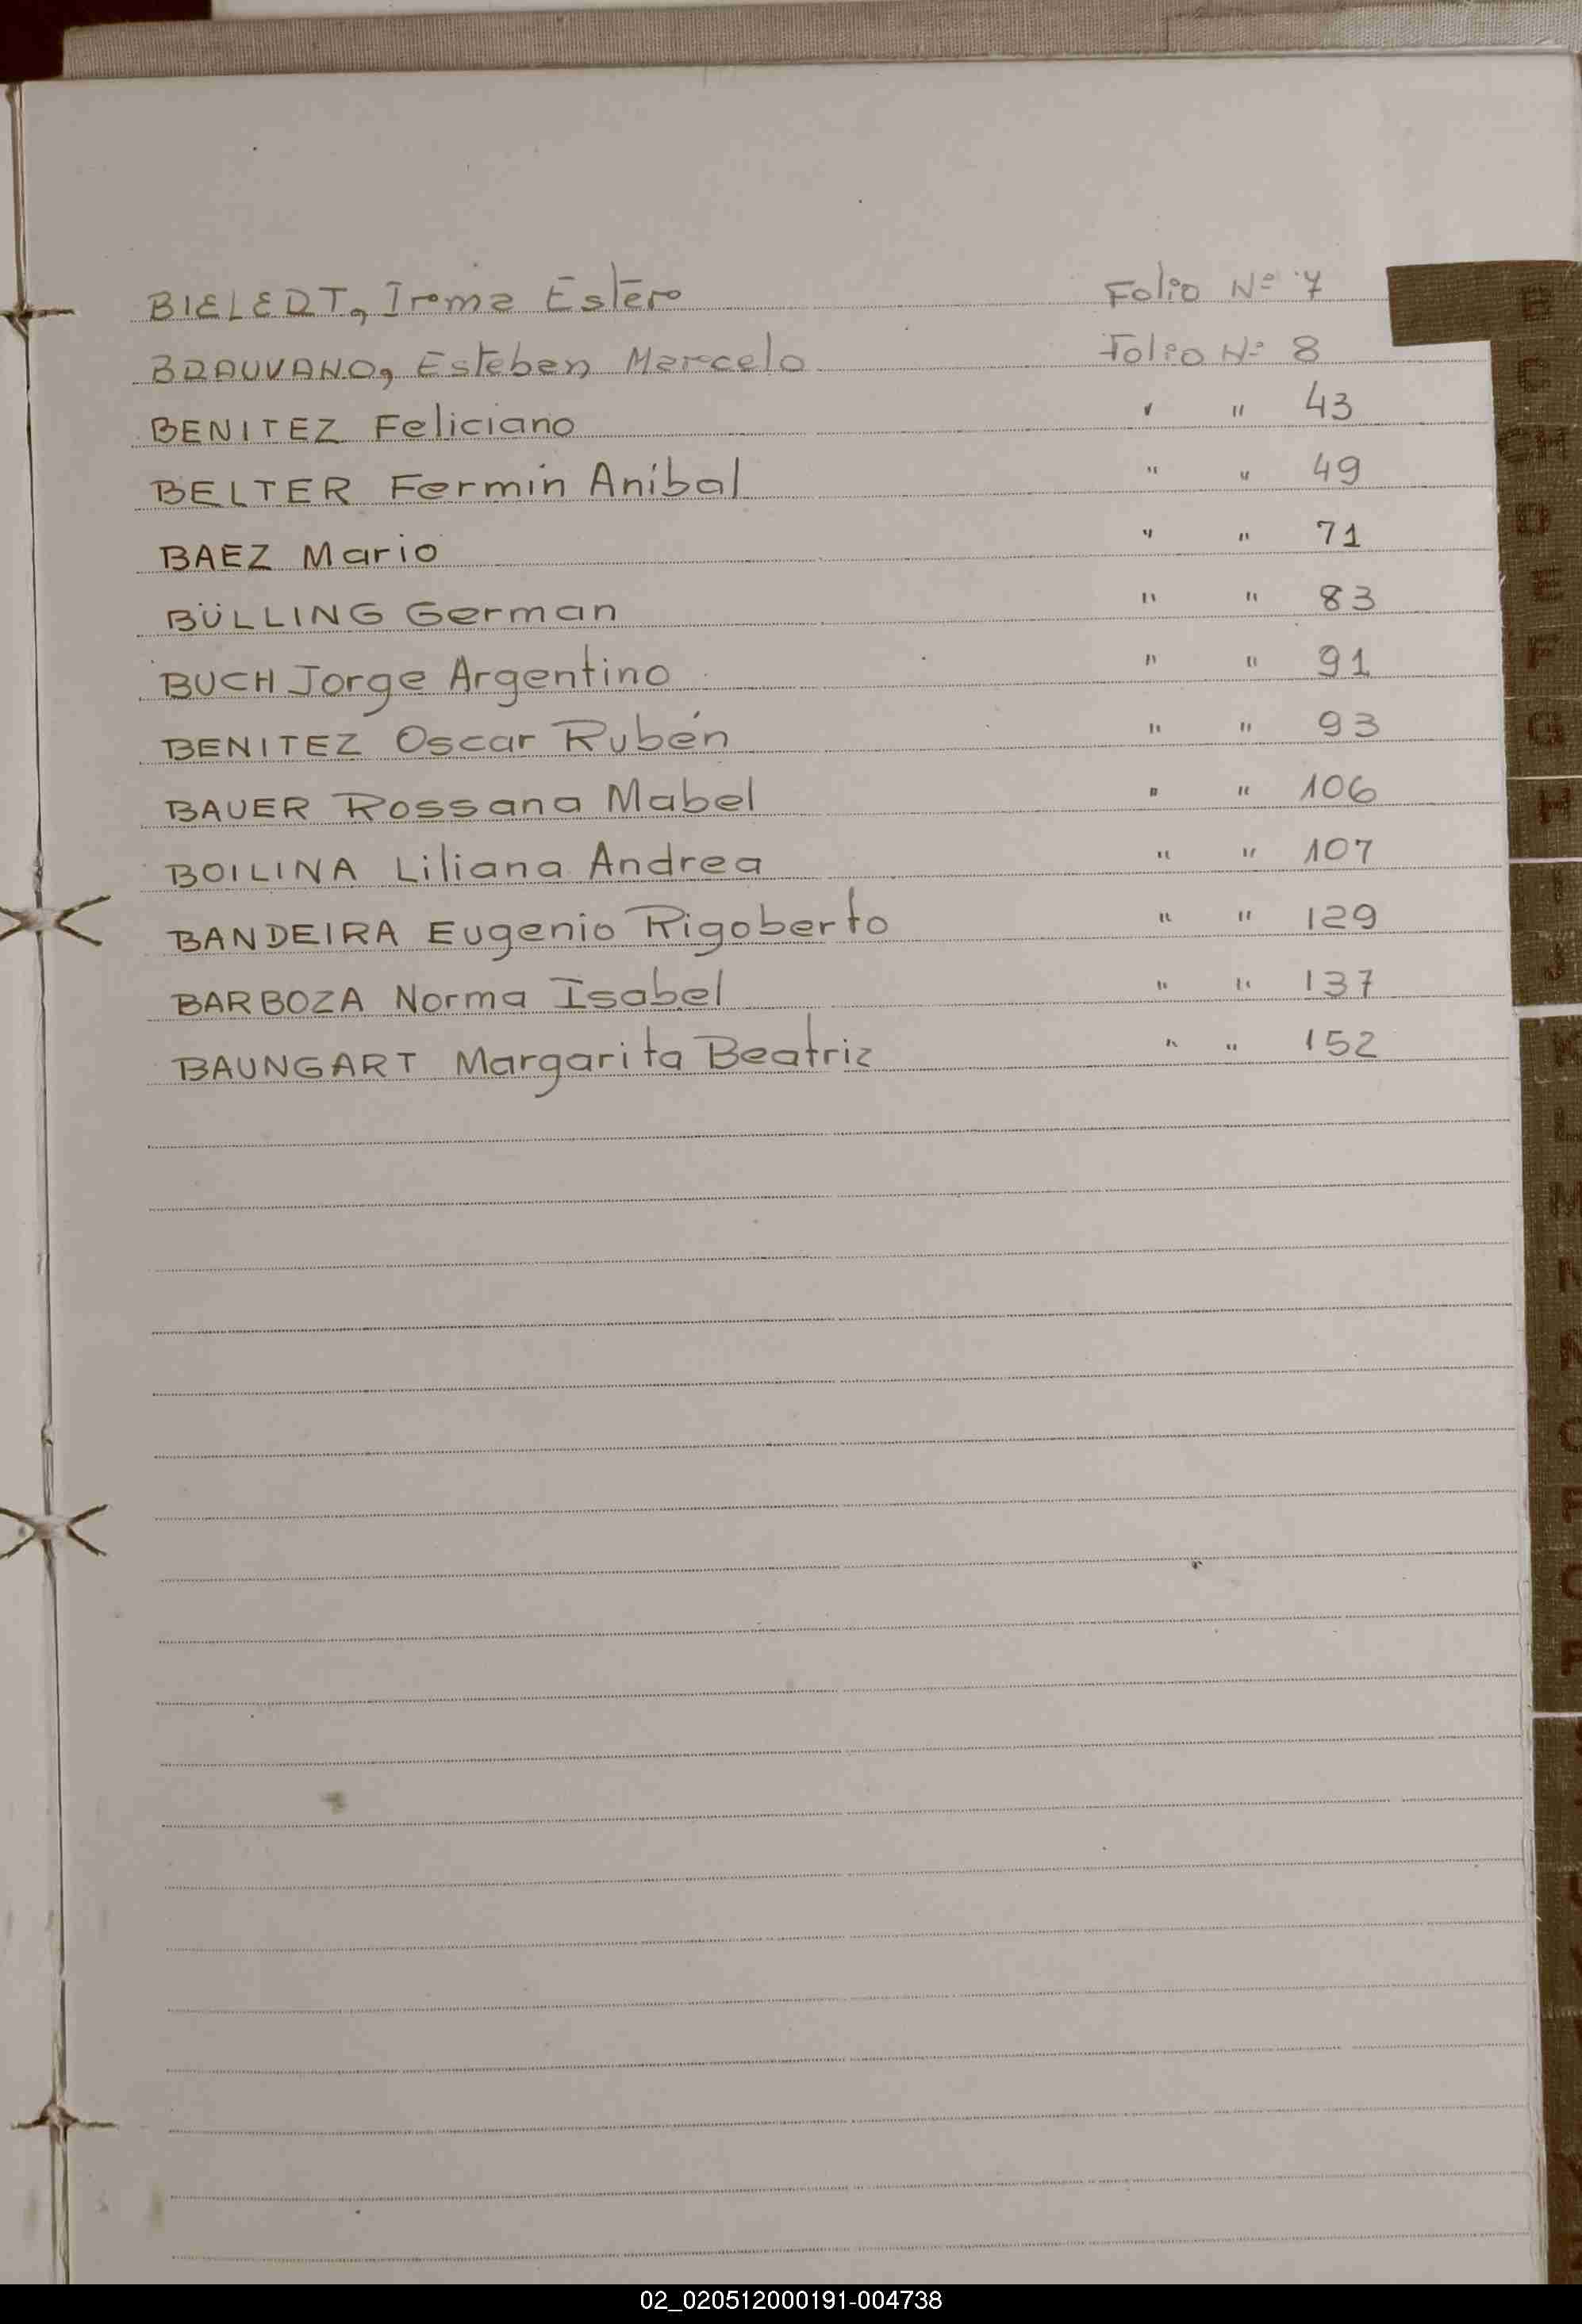 BIELEDT, Irma Ester Folio Nº 7
BRAUVANO, Esteban Marcelo Folio Nº 8
BENITEZ Feliciano " " 43
BELTER Fermin Aníbal " " 49
BAEZ Mario " " 71
BÜLLING German " " 83
BUCH Jorge Argentino " " 91
BENITEZ Oscar Rubén " " 93
BAUER Rossana Mabel " " 106
BOILINA Liliana Andrea " " 107
BANDEIRA Eugenio Rigoberto " " 129
BARBOZA Norma Isabel " " 137
BAUNGART Margarita Beatriz " " 152
B
C
CH
D
E
F
G
H
I
J
K
L
M
N
Ñ
O
P
02_020512000191-004738